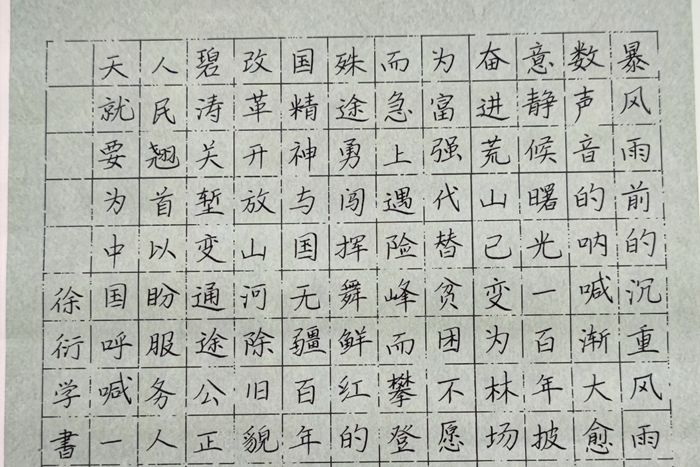 暴风雨前的沉重风雨
数声音的呐喊渐大愈
意静候曙光一百年披
奋进荒山已变为林场
为富强代替贫困不愿
而急上遇险峰而攀登
殊途勇闯挥舞鲜红的
国精神与国无疆百年
改革开放山河除旧貌
碧涛关堑变通途公正
人民翘首以盼服务人
天就要为中国呼喊一
徐衍学書